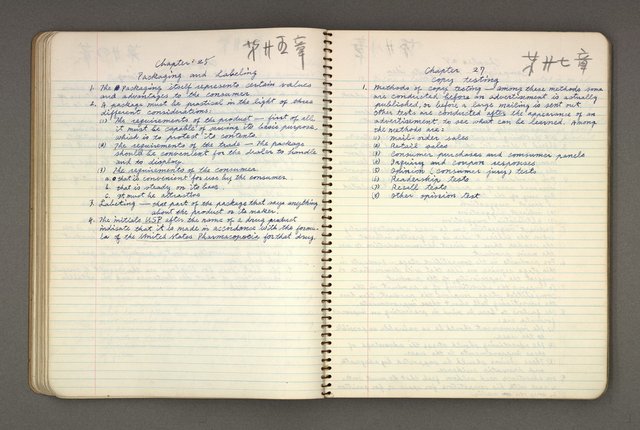 Chapter 25
第廿五章
Packaging and Labeling
1. The Packaging itself represents certain values
and advantages to the consumer.
2. A package must be practical in the light of three
different considerations:
(1) The requirements of the product — first of all
it must be capable of serving its basic purpose,
which is to protect its contents.
(2) The requirements of the trade — the package
should be convenient for the dealer to handle
and to display.
(3) The requirements of the consumer.
a. that is convenient for use by the consumer
b. that is steady on its base.
c. It must be attractive
3. Labeling — that part of the package that says anything
about the product or its maker.
4. The initials USP after the name of a drug product
indicate that it is made in accordance with the formu-
la of the United States Pharmacopoeia for that drug.
Chapter 27
第廿七章
Copy Testing
1. Methods of copy testing — among these methods some
are conducted before an advertisement is actually
published, or before a large mailing is sent out.
Other tests are conducted after the appearance of an
advertisement to see what can be learned. Among
the methods are:
(1) Mail-order sales
(2) Retail sales
(3) Consumer purchases and consumer panels
(4) Inquiry and coupon responses
(5) Opinion (consumer jury) tests
(6) Readership tests
(7) Recall tests
(8) Other opinion test